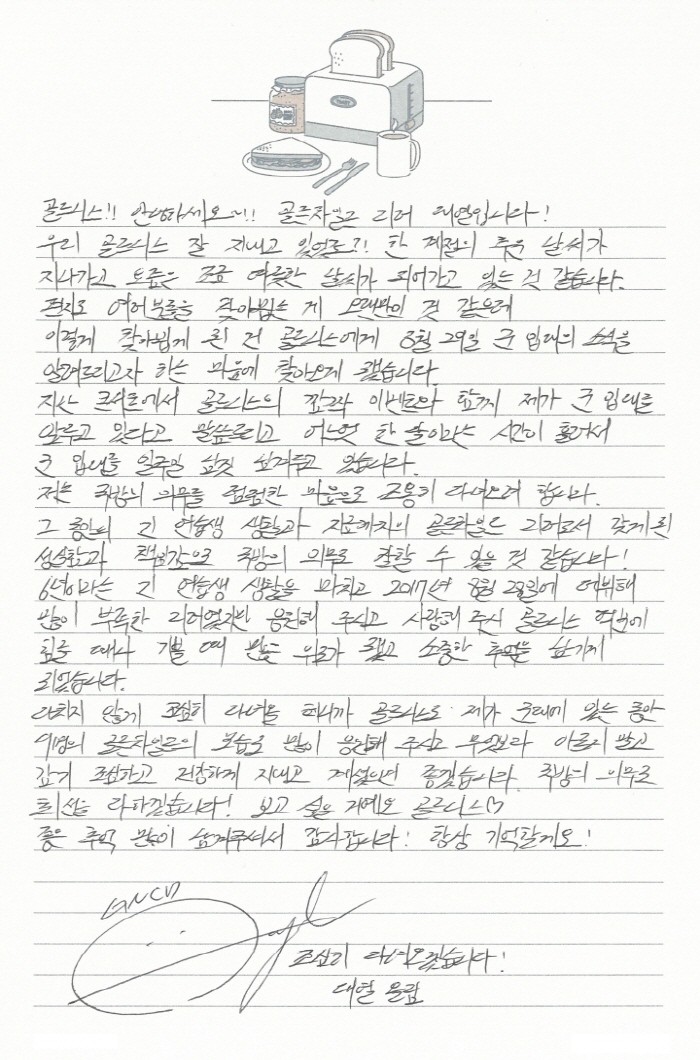 골드니스!! 안녕하세요~!! 골든차일드 리더 대열입니다!
우리 골드니스 잘 지내고 있었죠?! 한 계절의 추운 날씨가
지나가고 요즘은 조금 따뜻한 날씨가 되어가고 있는 것 같습니다.
편지로 여러분들을 찾아뵙는 게 오랜만인 것 같은데
이렇게 찾아뵙게 된 건 골드니스에게 3월 29일 군 입대의 소식을
알려드리고자 하는 마음에 찾아오게 됐습니다.
지난 콘서트에서 골드니스의 깜짝 이벤트와 함께 제가 군 입대를
앞두고 있다고 말씀드리고 어느덧 한 달이라는 시간이 흘러서
군 입대를 일주일 남짓 남겨두고 있습니다.
저는 국방의 의무를 덤덤한 마음으로 조용히 다녀오려 합니다.
그 동안의 긴 연습생 생활과 지금까지의 골든차일드 리더로서 갖게 된
성실함과 책임감으로 국방의 의무도 잘할 수 있을 것 같습니다!
6년이라는 긴 연습생 생활을 마치고 2017년 8월 28일에 데뷔해
많이 부족한 리더였지만 응원해 주시고 사랑해 주신 골드니스 덕분에
힘들 때나 기쁠 때 많은 위로가 됐고 소중한 추억을 남기게
되었습니다.
다치지 않게 조심히 다녀올 테니까 골드니스도 제가 군대에 있는 동안
9명의 골든차일드의 모습을 많이 응원해 주시고 무엇보다 아프지 말고
감기 조심하고 건강하게 지내고 계셨으면 좋겠습니다. 국방의 의무도
최선을 다하겠습니다! 보고 싶을 거예요 골드니스♡
좋은 추억 많이 남겨주셔서 감사합니다! 항상 기억할게요!
GNCD
조심히 다녀오겠습니다!
대열 올림